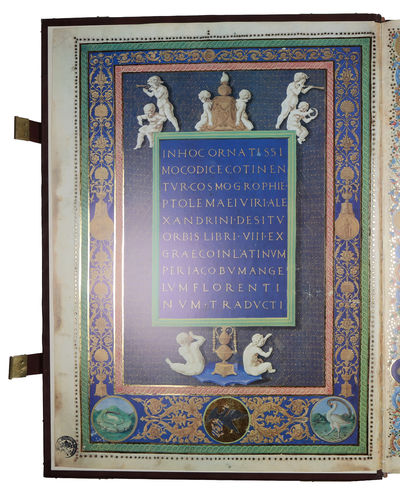 INHOC ORNATISSI
MOCODICE COTINEN
TVR COSMOGROPHIE·
PTOLEMAEI VIRI·ALE
XANDRINI·DESITV
ORBIS LIBRI·VIII·EX
GRAECO INLATINVM
PER IACOBVM ANGE
LVM FLORENTI
NVM·TRADVCTI